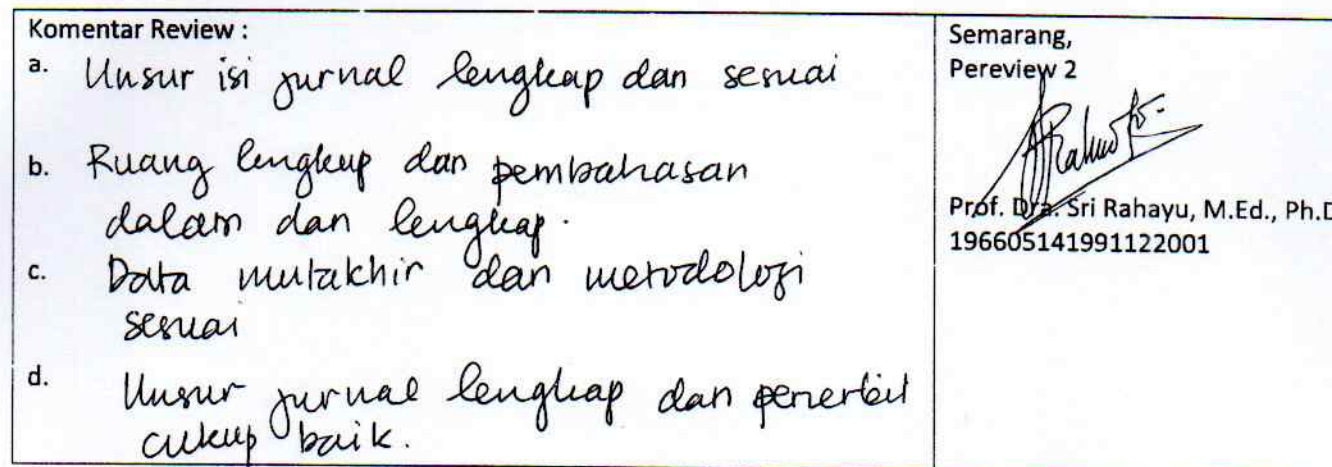 Komentar Review :
a. Unsur isi jurnal lengkap dan sesuai
b. Ruang lengkup dan pembahasan
dalam dan lengkap.
c. Data mutakhir dan metodologi
sesuai
d. Unsur jurnal lengkap dan penerbit
cukup baik.
Semarang,
Pereview 2
Prof. Dra. Sri Rahayu, M.Ed., Ph.D
196605141991122001